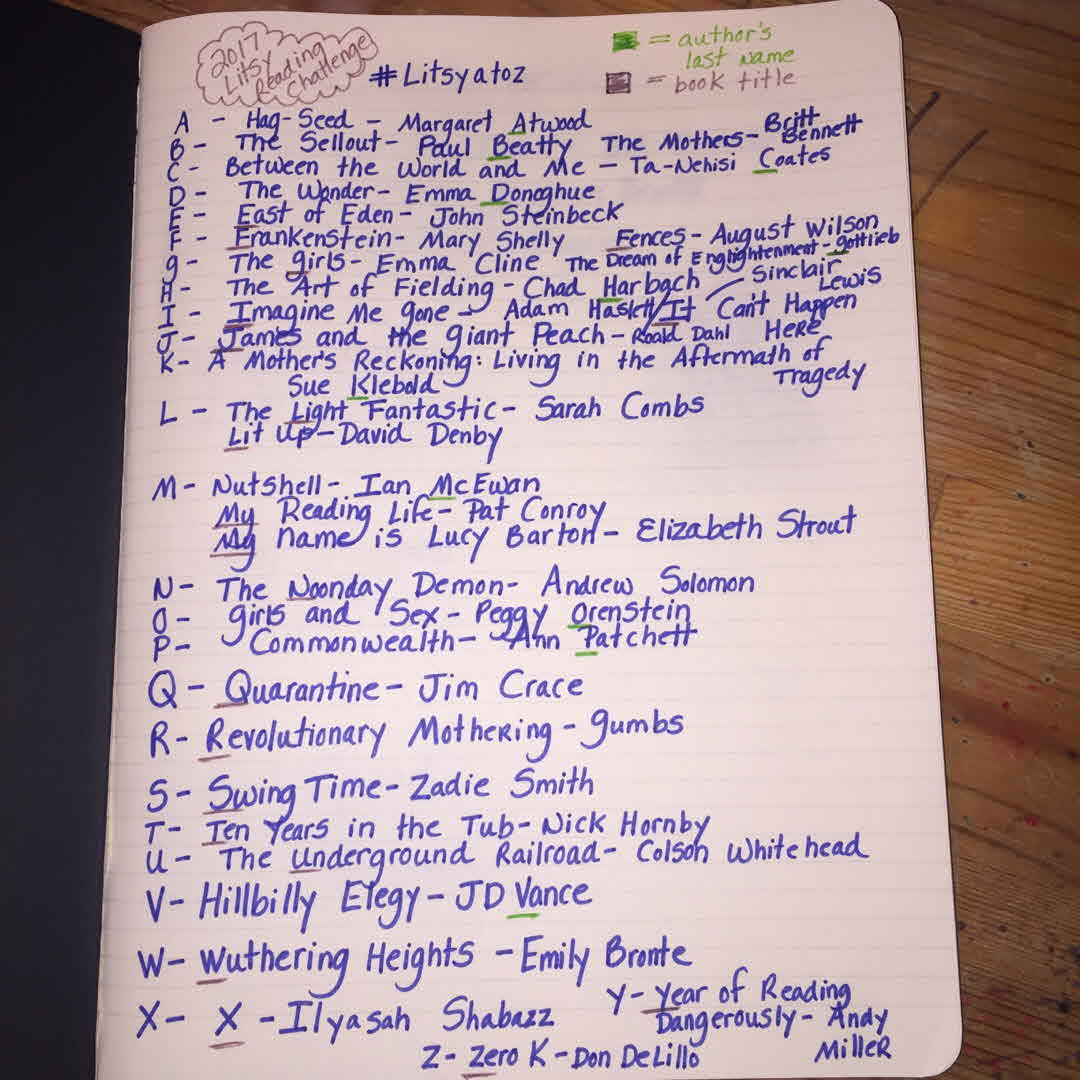 2017
Litsy
Reading
Challenge
#Litsyatoz
= author's
last name
= book title
A - Hag-Seed - Margaret Atwood
B - The Sellout - Paul Beatty The Mothers - Britt
Bennett
C - Between the World and Me - Ta-Nehisi Coates
D - The Wonder - Emma Donoghue
E - East of Eden - John Steinbeck
F - Frankenstein - Mary Shelly Fences - August Wilson
g - The girls - Emma Cline The Dream of Englightenment - gottlieb
H - The Art of Fielding - Chad Harbach
I - Imagine Me gone - Adam Haslett / It Can't Happen
Here
Sinclair
Lewis
J - James and the giant Peach - Roald Dahl
K - A Mother's Reckoning: Living in the Aftermath of
Tragedy
Sue Klebold
L - The Light Fantastic - Sarah Combs
Lit Up - David Denby
M - Nutshell - Ian McEwan
My Reading Life - Pat Conroy
My name is Lucy Barton - Elizabeth Strout
N - The Noonday Demon - Andrew Solomon
O - girls and Sex - Peggy Orenstein
P - Commonwealth - Ann Patchett
Q - Quarantine - Jim Crace
R - Revolutionary Mothering - gumbs
S - Swing Time - Zadie Smith
T - Ten Years in the Tub - Nick Hornby
U - The Underground Railroad - Colson Whitehead
V - Hillbilly Elegy - JD Vance
W - Wuthering Heights - Emily Bronte
X - X - Ilyasah Shabazz
Y - Year of Reading
Dangerously - Andy
Miller
Z - Zero K - Don DeLillo